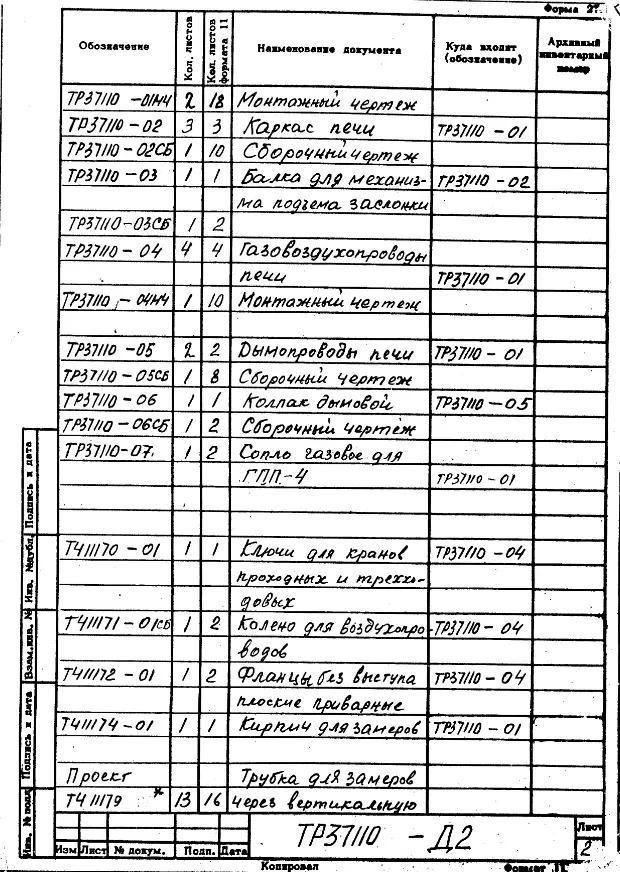 Форма 2г.
Обозначение Кол. листов Кол. листов формата 11 Наименование документа Куда входит (обозначение) Архивный инвентарный номер
ТР37110 -01МЧ 2 18 Монтажный чертеж
ТР37110 -02 3 3 Каркас печи ТР37110 - 01
ТР37110 -02СБ 1 10 Сборочный чертеж
ТР37110 -03 1 1 Балка для механиз- ТР37110 - 02
ма подъема заслонки
ТР37110-03СБ 1 2
ТР37110 - 04 4 4 Газовоздухопроводы
печи ТР37110 - 01
ТР37110 - 04МЧ 1 10 Монтажный чертеж
ТР37110 -05 2 2 Дымопроводы печи ТР37110 - 01
ТР37110 -05СБ 1 8 Сборочный чертеж
ТР37110 - 06 1 1 Колпак дымовой ТР37110 - 05
ТР37110 - 06СБ 1 2 Сборочный чертеж
ТР37110-07 1 2 Сопло газовое для
ГПП-4 ТР37110 - 01
Т411170 - 01 1 1 Ключи для кранов ТР37110 - 04
проходных и треххо-
довых
Т411171 - 01СБ 1 2 Колено для воздухопро- ТР37110 - 04
водов
Т411172 - 01 1 2 Фланцы без выступа ТР37110 - 04
плоские приварные
Т411174-01 1 1 Кирпич для замеров ТР37110 - 01
Проект Трубка для замеров
Т411179 * 13 16 через вертикальную
Подпись и дата
Инв. № дубл.
Взам. инв. №
Подпись и дата
Инв. № подл.
ТР37110 - Д2
Лист
2
Изм Лист № докум. Подп. Дата
Копировал Формат 11